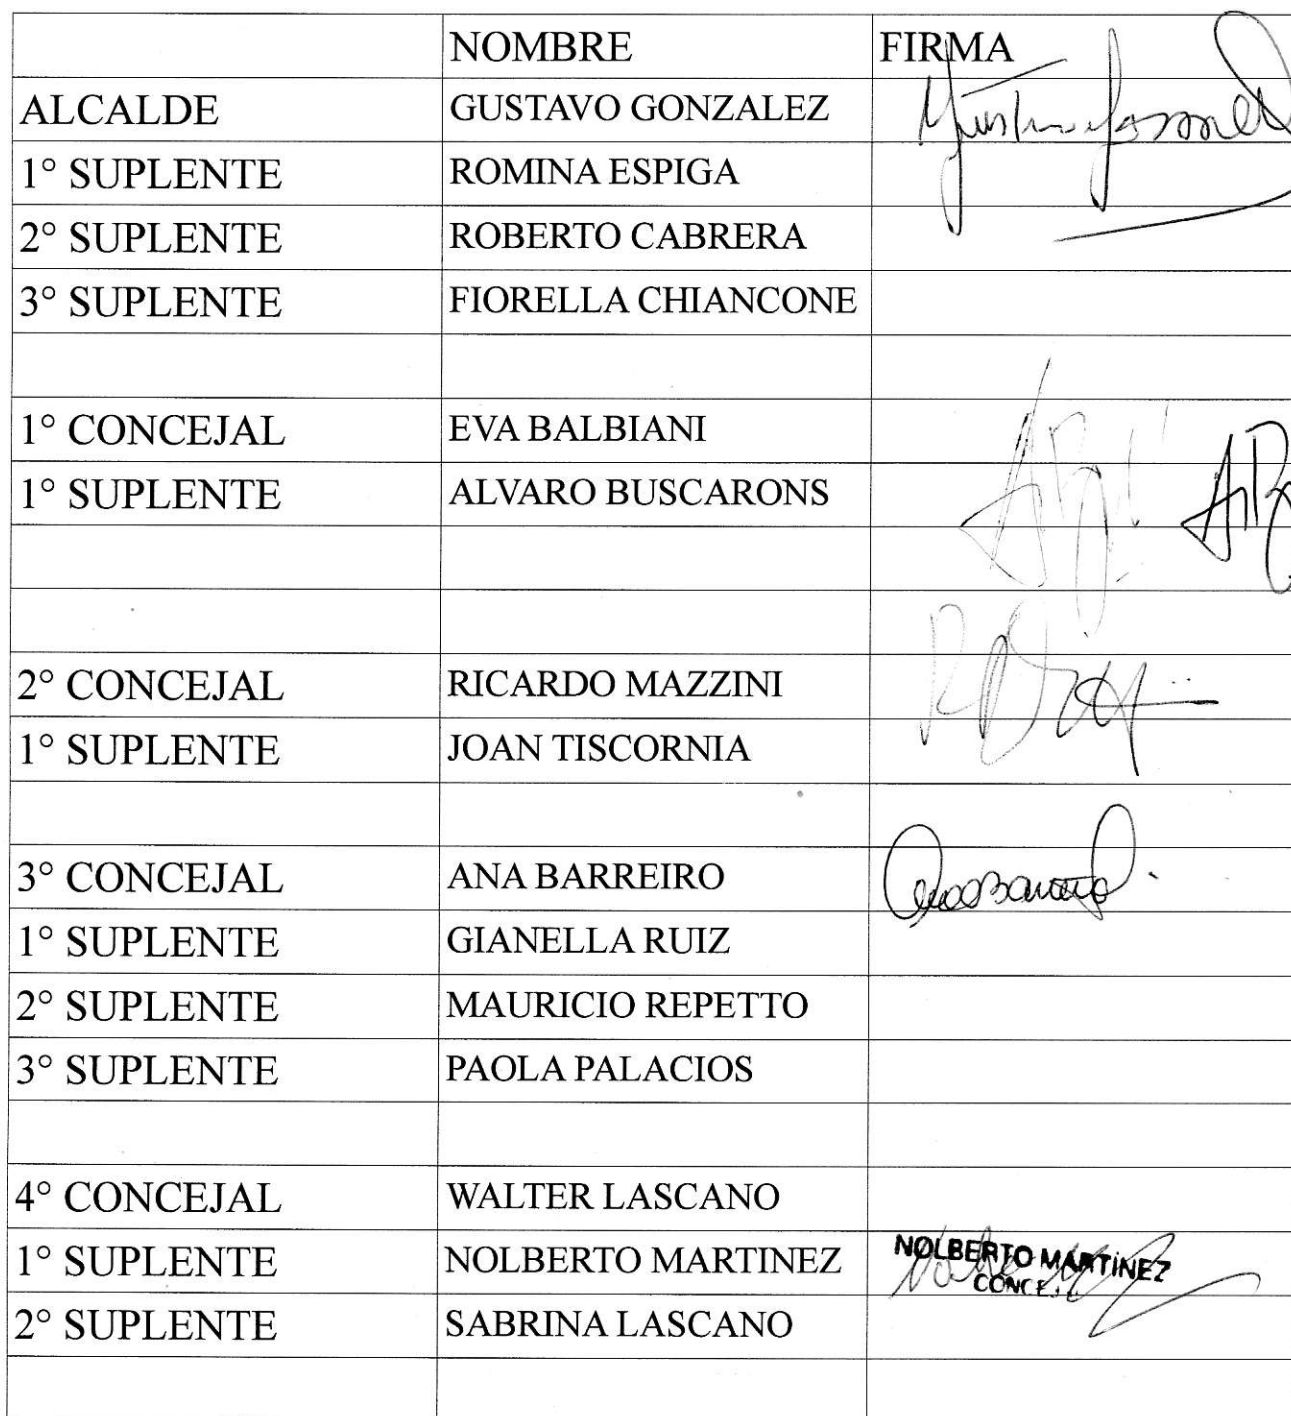 NOMBRE FIRMA
ALCALDE GUSTAVO GONZALEZ
1° SUPLENTE ROMINA ESPIGA
2° SUPLENTE ROBERTO CABRERA
3° SUPLENTE FIORELLA CHIANCONE
1° CONCEJAL EVA BALBIANI
1° SUPLENTE ALVARO BUSCARONS
2° CONCEJAL RICARDO MAZZINI
1° SUPLENTE JOAN TISCORNIA
3° CONCEJAL ANA BARREIRO
1° SUPLENTE GIANELLA RUIZ
2° SUPLENTE MAURICIO REPETTO
3° SUPLENTE PAOLA PALACIOS
4° CONCEJAL WALTER LASCANO
1° SUPLENTE NOLBERTO MARTINEZ NOLBERTO MARTINEZ
2° SUPLENTE SABRINA LASCANO